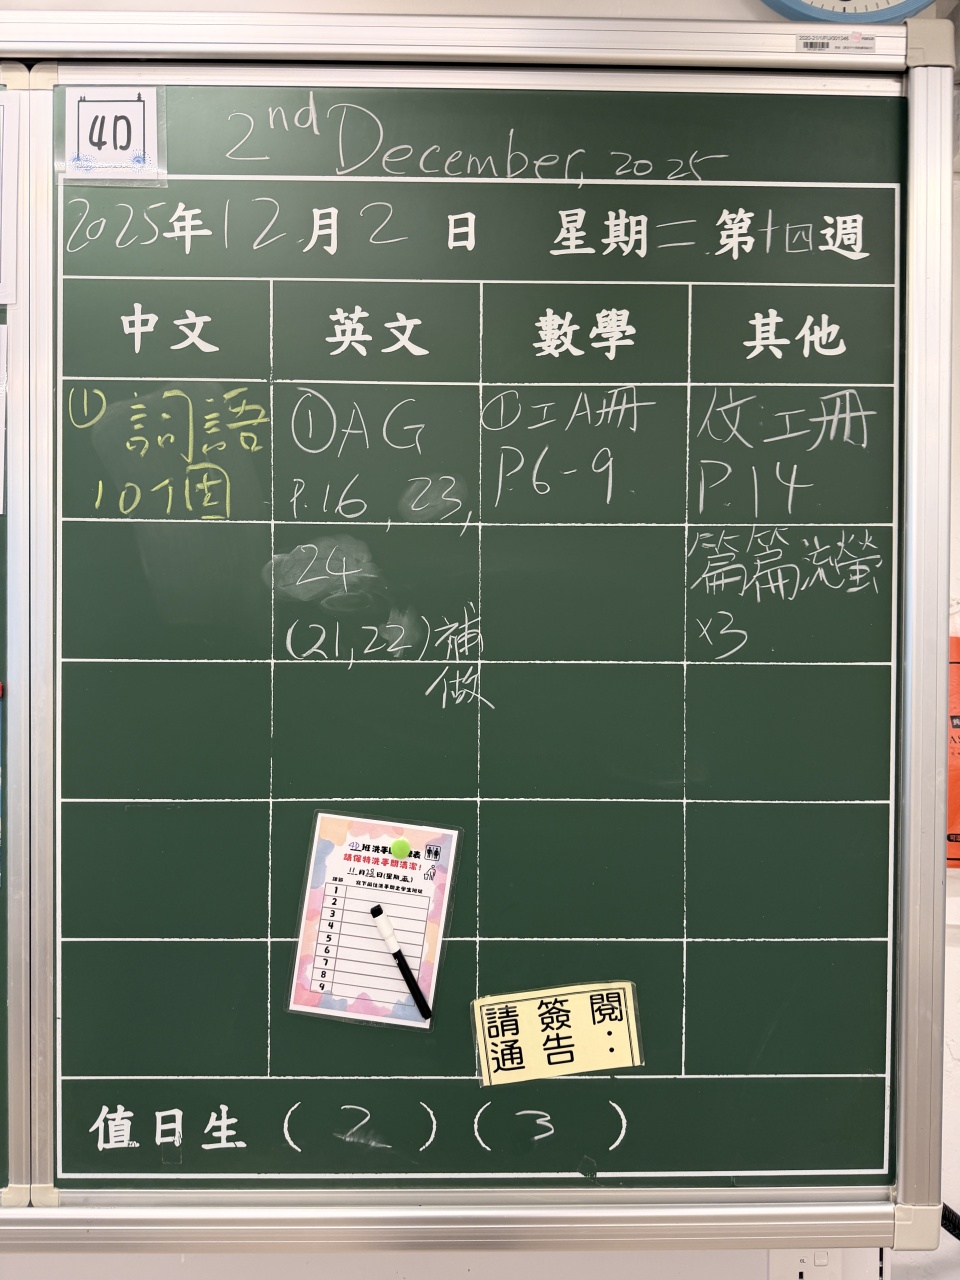 4D
2nd December, 2025
2025年12月2日 星期二 第十四週
中文
英文
數學
其他
① 詞語
10個
① AG
P.16, 23,
24
(21,22)補
做
① 工A冊
P.6-9
工冊
P.14
篇篇流螢
x3
4D班洗手間
請保持洗手間清潔!
11月28日(星期五)
1
2
3
4
5
6
7
8
9
請簽閱
通告:
值日生 ( 2 ) ( 3 )